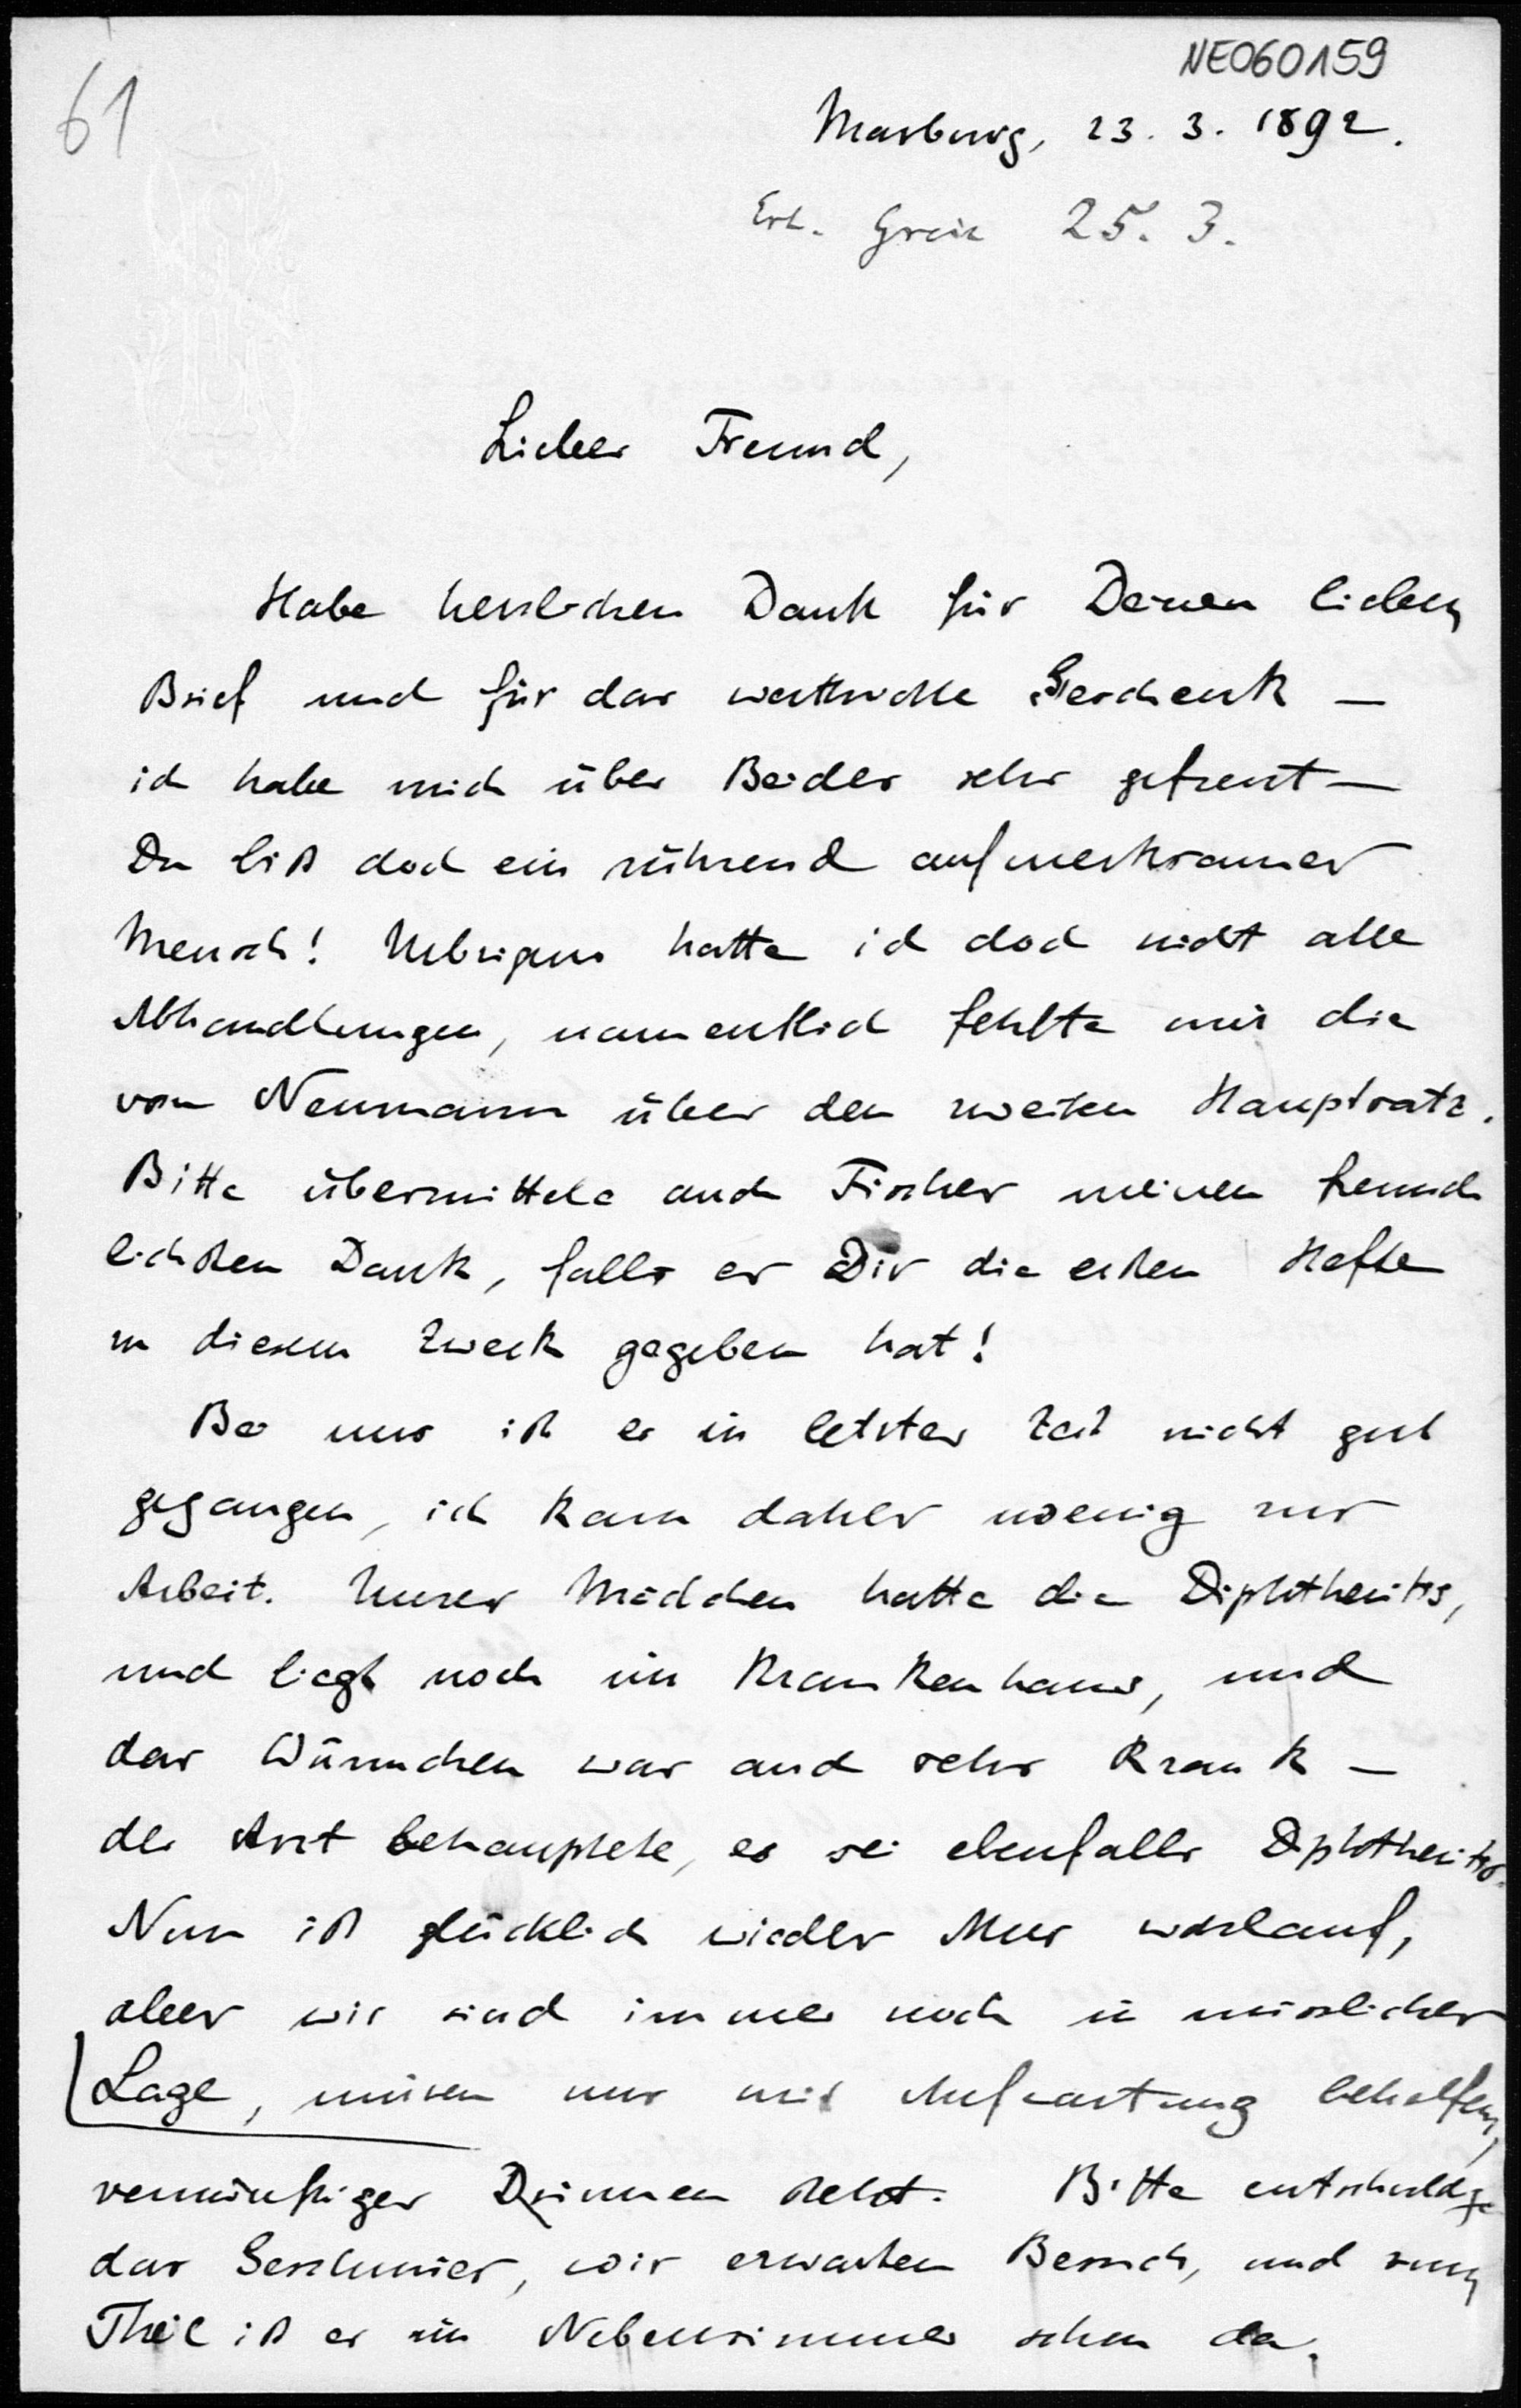 NE060159
61
Marburg, 23. 3. 1892.
Erh. Graz 25. 3.
Lieber Freund,
Habe herzlichen Dank für Deinen lieben
Brief und für das werthvolle Geschenk —
ich habe mich über Beides sehr gefreut —
Du bist doch ein rührend aufmerksamer
Mensch! Uebrigens hatte ich doch nicht alle
Abhandlungen, namentlich fehlte mir die
von Neumann über den zweiten Hauptsatz.
Bitte übermittele auch Fischer meinen freund
lichsten Dank, falls er Dir die ersten Hefte
zu diesem Zweck gegeben hat!
Bei uns ist es in letzter Zeit nicht gut
gegangen, ich kam daher wenig zur
Arbeit. Unser Mädchen hatte die Diphtheritis,
und liegt noch im Krankenhaus, und
das Würmchen war auch sehr krank —
der Arzt behauptete, es sei ebenfalls Diphtheritis.
Nun ist glücklich wieder Alles wohlauf,
aber wir sind immer noch in misslicher
Lage, müssen uns mit Aufwartung behelfen,
vernünftiger
Bitte entschuldige
das Geschmier, wir erwarten Besuch, und zum
Theil ist er im Nebenzimmer schon da.